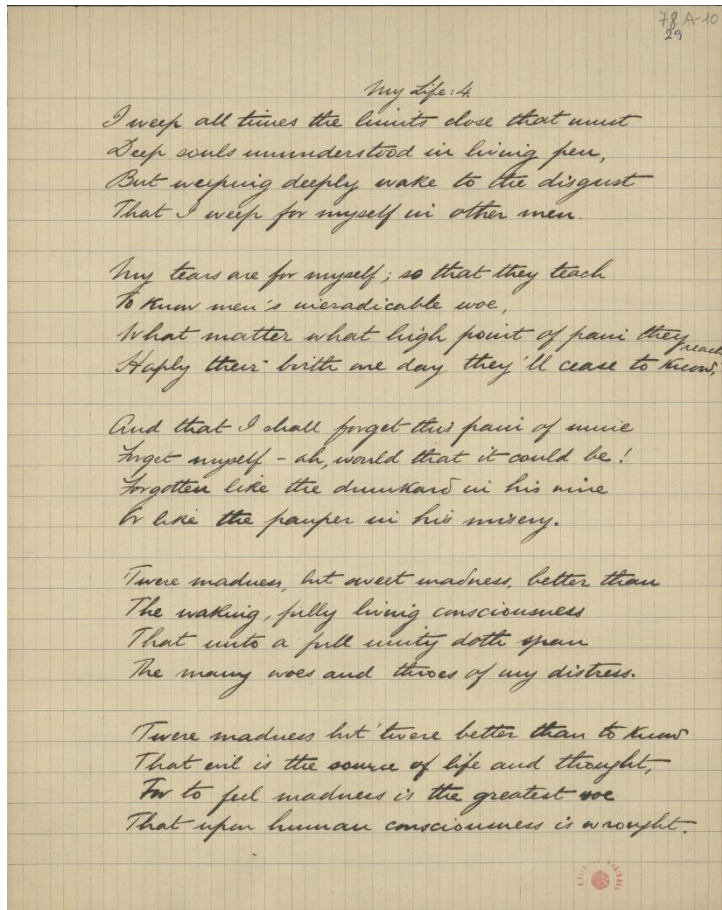 78 A-10
29
My Life: 4.
I weep all times the limits close that must
Deep souls ununderstood in living pen,
But weeping deeply wake to the disgust
That I weep for myself in other men.
My tears are for myself; so that they teach
To know men's ineradicable woe,
What matter what high point of pain they reach
Haply their birth one day they'll cease to know,
And that I shall forget this pain of mine
Forget myself - ah, would that it could be!
Forgotten like the drunkard in his wine
Or like the pauper in his misery.
Twere madness, but sweet madness, better than
The waking, fully living consciousness
That unto a full unity doth span
The many woes and throes of my distress.
Twere madness but 'twere better than to know
That evil is the source of life and thought,
For to feel madness is the greatest woe
That upon human consciousness is wrought.